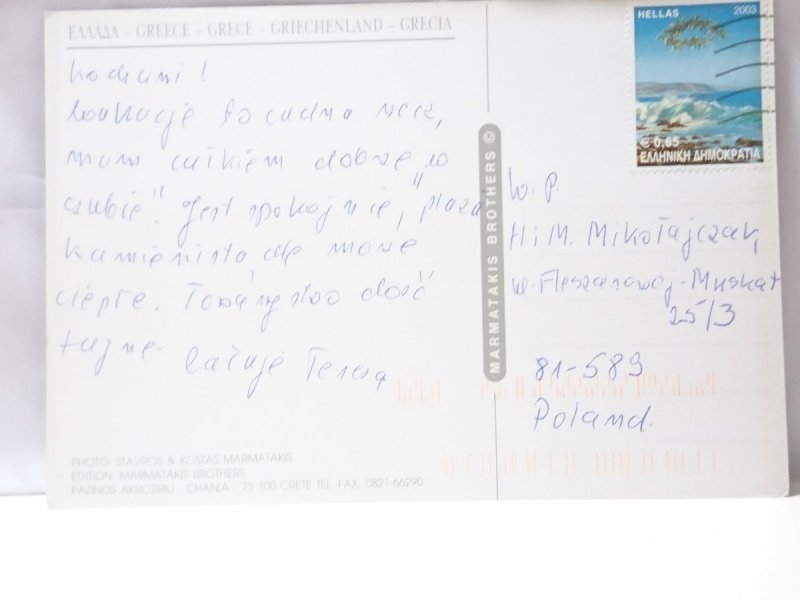 ΕΛΛΑΔΑ – GREECE – GRECE – GRIECHENLAND – GRECIA
Kochani!
to cudna rzecz,
mam całkiem dobrze "w
czubie". Jest spokojnie, plaża
kamienista ale morze
ciepłe. Towarzystwo dość
fajne.
Całuję Teresa
MARMATAKIS BROTHERS ©
HELLAS 2003
€ 0,65
ΕΛΛΗΝΙΚΗ ΔΗΜΟΚΡΑΤΙΑ
W.P.
H i M. Mikołajczak
ul. Fleszarowej-Muskat
25/3
81-589
Poland.
PHOTO: STAVROS & KOSTAS MARMATAKIS
EDITION: MARMATAKIS BROTHERS
PAZINOS AKROTIRIU - CHANIA - 73 100 CRETE TEL.-FAX. 0821-66290